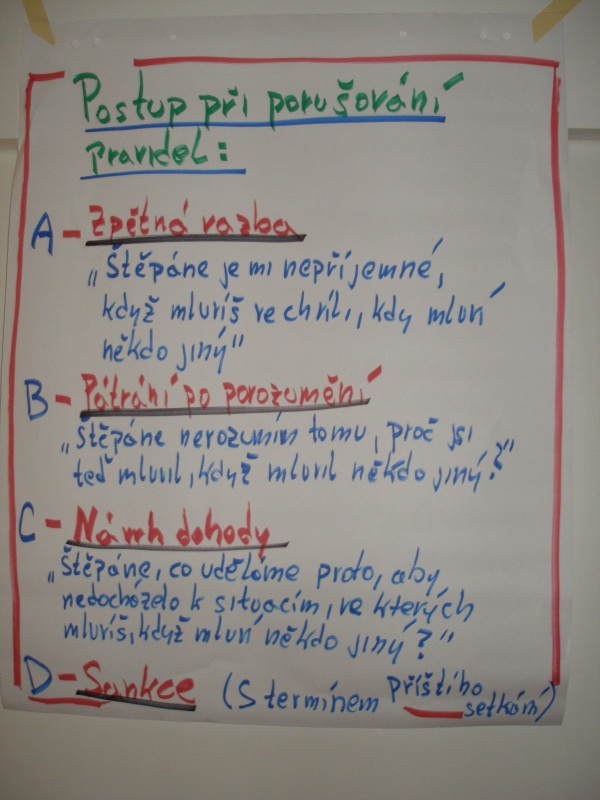 Postup při porušování
pravidel:
A - Zpětná vazba
„Štěpáne je mi nepříjemné,
když mluvíš ve chvíli, kdy mluví
někdo jiný"
B - Pátrání po porozumění
„Štěpáne nerozumím tomu, proč jsi
teď mluvil, když mluvil někdo jiný?"
C - Návrh dohody
„Štěpáne, co uděláme proto, aby
nedocházelo k situacím, ve kterých
mluvíš, když mluví někdo jiný?"
D - Sankce (S termínem příštího
setkání)